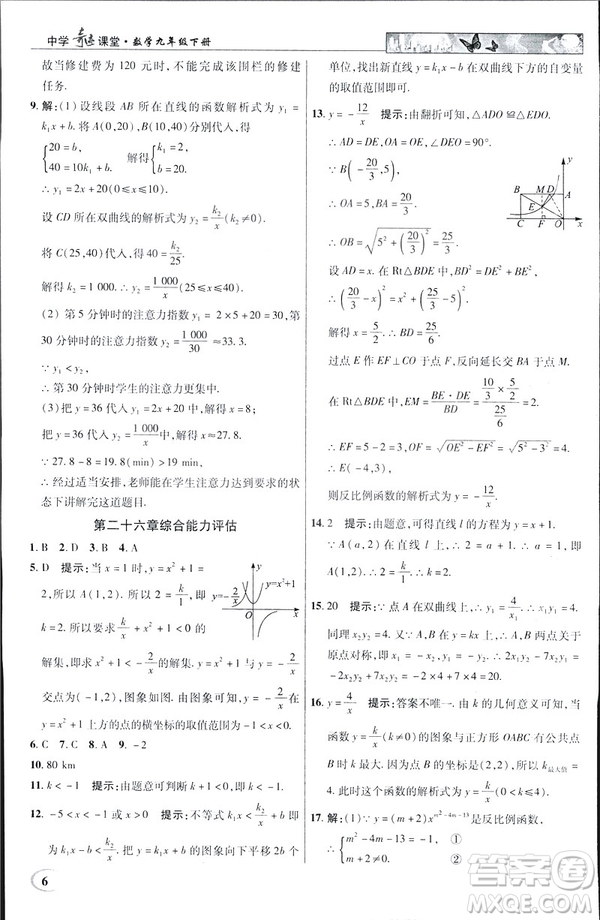 中学奇迹课堂·数学九年级下册
故当修建费为 120 元时，不能完成该围栏的修建
任务.
9. 解：(1) 设线段 AB 所在直线的函数解析式为 y₁ =
k₁x + b. 将 A(0,20)，B(10,40) 分别代入，得
{20 = b, 40 = 10k₁ + b. 解得 {k₁ = 2, b = 20.
∴ y₁ = 2x + 20.
设 CD 所在双曲线的解析式为 y₂ = k₂/x.
将 C(25,40) 代入，得 40 = k₂/25.
解得 k₂ = 1 000. ∴ y₂ = 1 000/x (25≤x≤40).
(2) 第 5 分钟时的注意力 y₁ = 2×5 + 20 = 30，第
30 分钟时的注意力 y₂ = 1 000/30 ≈ 33.3.
∴ 第 30 分钟时学生的注意力更集中.
(3) 把 y = 36 代入 y₁ = 2x + 20，得 x = 8.
把 y = 36 代入 y₂ = 1 000/x，得 x ≈ 27.8.
∵ 27.8 - 8 = 19.8 > 19，
∴ 经过适当安排，老师能在学生注意力达到所需状
态下讲解完这道题目.
第二十六章综合能力评估
1. B 2. D 3. B 4. A
5. D 提示：当 x = 1 时，y = x² + 1 =
2，所以 A(1,2). 把 A(1,2) 代入，得
k = 2. 所以要求解集的不等式即为
2/x + x² + 1 < 0 的解集. x² + 1 与 - 2/x
y = x² + 1
y
O
x
交点为 (-1,2)，图象如图. 由图象可知，y = - 2/x 在
y = x² + 1 上方的点的横坐标的取值范围是 -1 < x < 0.
6. C 7. C 8. A 9. -2
10. 80 km
11. k < -1 提示：由题意可判断 k + 1 < 0，所以 k < -1.
12. -5 < x < -1 或 x > 0 提示：不等式 k₂/x < k₁x + b 即
为 k₁x - b < k₂/x，即将 y = k₁x + b 的图象向下平移 2b 个
6
单位，写出新直线 y = k₁x - b 在双曲线下方的自变量
的取值范围即可.
13. y = - 12/x 提示：由翻折可知，△ADO ≌ △EDO.
∴ AD = DE，OA = OE，∠DAO = ∠OED = 90°.
∵ B(- 20/3, 5)，
∴ OA = 5，AB = 20/3.
∴ OB = √(5² + (20/3)²) = 25/3.
B
M
D
A
E
C
F
O
x
y
设 AD = x，在 Rt△BDE 中，BD² = DE² + BE²，
∴ (20/3 - x)² = x² + (25/3 - 5)².
解得 x = 5/2. ∴ BD = 20/3 - 5/2 = 25/6.
过点 E 作 EF⊥CO 于点 F，反向延长交 BA 于点 M.
在 Rt△BDE 中，EM = BE·DE/BD = (10/3 × 5/2)/(25/6) = 2.
∴ EF = 5 - 2 = 3. ∴ OF = √(OE² - EF²) = √(5² - 3²) = 4.
∴ E(-4,3). ∴ k = -4×3 = -12.
则反比例函数的解析式为 y = - 12/x.
14. 2 提示：由题意，可知直线 l 的方程为 y = x + 1.
∵ A(a,2) 在直线 l 上，∴ 2 = a + 1. ∴ a = 1. 即
A(1,2). ∵ A(1,2) 在 y = k/x 上，∴ k = 2.
15. 20 提示：∵ 点 A 在双曲线上，∴ y₁ = 4/x₁. ∴ x₁y₁ = 4.
同理 x₂y₂ = 4. 又 ∵ y = kx 与 y = 4/x 的两交点关于
原点对称，∴ x₁y₂ = x₂y₁ = -4. ∴ 2x₁y₂ - 7x₂y₁ =
-2×4 + 7×4 = 20.
16. y = 4/x 提示：答案不唯一. 由 k 的几何意义可知，当
此函数的图象与正方形 OABC 有公共点，且 k 取最大
值时，图象经过点 B 的坐标是 (2,2)，所以 k最大值 =
4. 即满足条件的函数的解析式为 y = 4/x.
17. 解：(1) ∵ 函数 y = (m + 2)x^(m²-4m-13) 是反比例函数，
∴ {m² - 4m - 13 = -1, ① m + 2 ≠ 0. ②